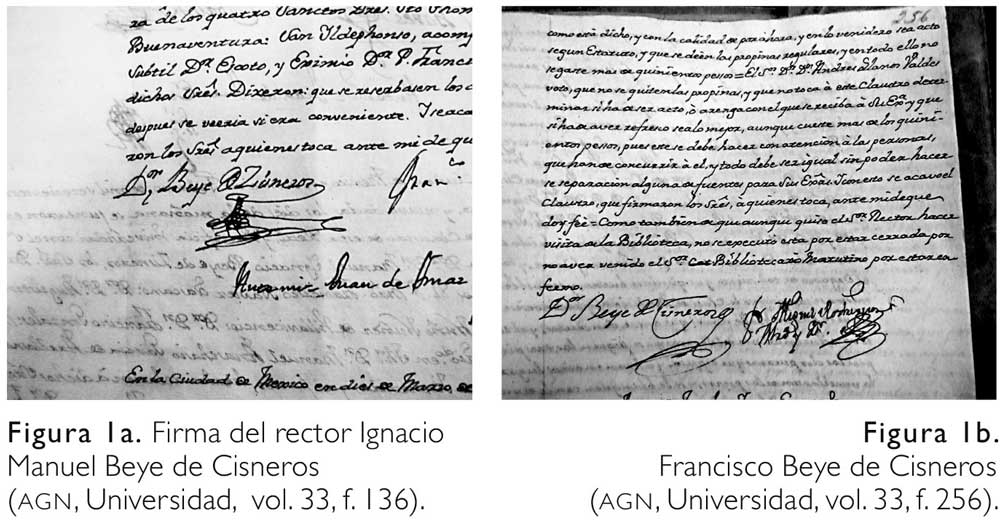 za de los quatro Sanctos Dres. Sto Thom
Buenaventura: San Ildephonso, acom
Subtil Dr. Escoto, y Eximio Dr. P. Franc
dichos Sres. Dixeron: que se reserbasen los
despues se veeria si era conveniente. I se aca
ron los Sres aquienes toca ante mi de qu
Dor Beye de Cisneros
Fran
Ante mi Juan de
En la Ciudad de Mexico en dies de Marzo,
256
como está dicho, y con la calidad de por áhora, y en lo venidero sea acto
segun Estatuto, y que se deèn las propinas regulares, y en todo ello no
segaste mas de quinientos pessos = El Sor Dr. Dn. Andres Llanos Valdes
voto, que no se quiten las propinas, y que no toca à este Claustro deter
minar si ha de ser acto, ò arenga con el que se reciba à Su Exa. y que
si ha de aver refresco sea lo mejor, aunque cueste mas de los quini
entos pessos, pues este se debe hacer con atencion à las personas,
que han de concurrir à el, y todo debe ser igual sin poder hacer
se separacion alguna de fuentes para Sus Exas. I con esto se acavo el
Claustro, que firmaron los Sres, à quienes toca, ante mi de que
doy feè = Como tambien de que aunque quiso el Sor Rector hacer
visita de la Biblioteca, no se executó esta por estar cerrada por
no aver venido el Sor Bibliotecario Matutino por estar en
fermo.
Dor Beye de Cisneros
Figura 1a. Firma del rector Ignacio
Manuel Beye de Cisneros
(AGN, Universidad, vol. 33, f. 136).
Figura 1b.
Francisco Beye de Cisneros
(AGN, Universidad, vol. 33, f. 256).